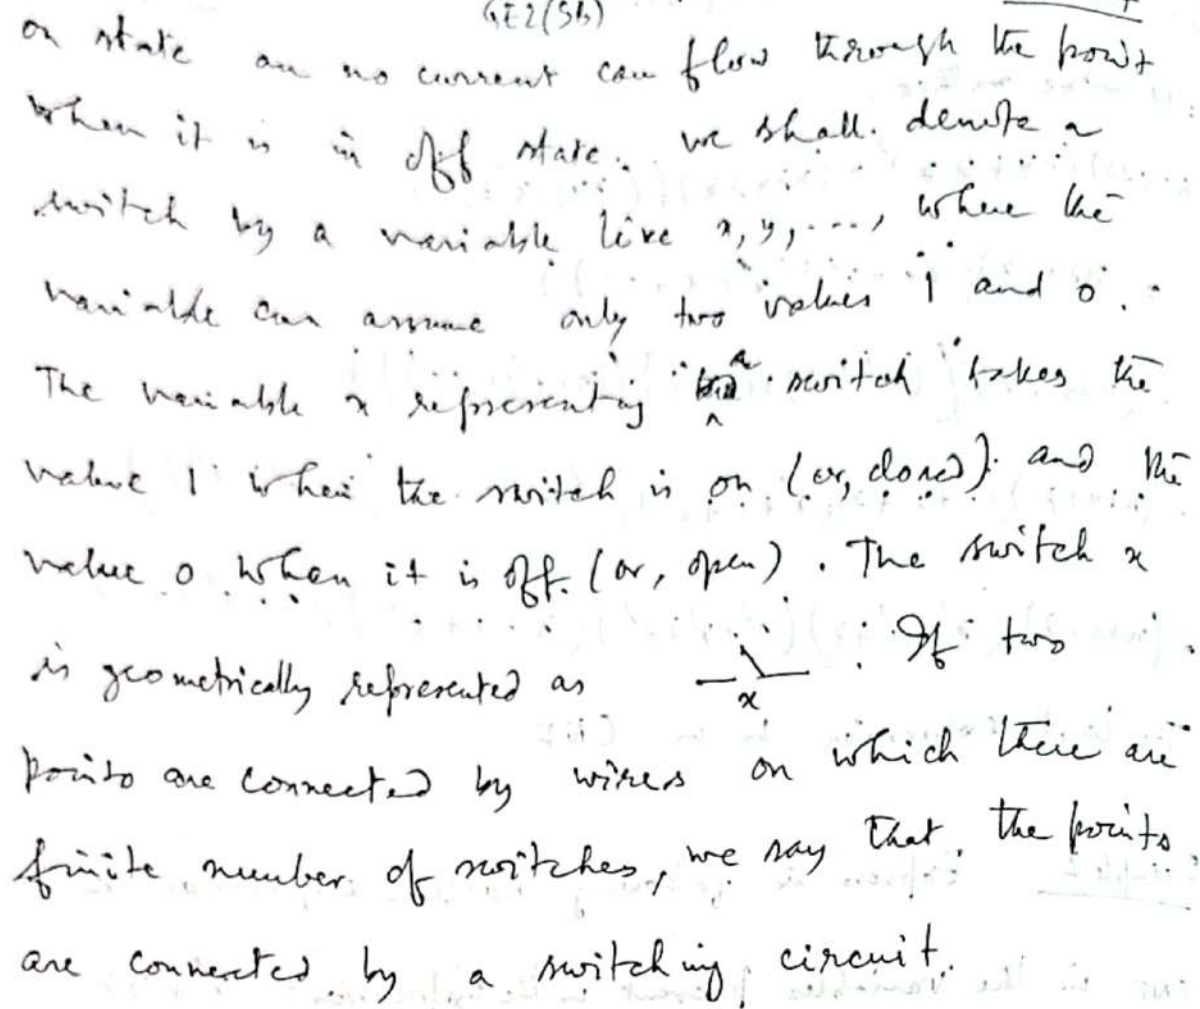 GE2(5b)
on state an no current can flow through the point
when it is in off state. we shall denote a
switch by a variable like x, y, ..., where the
variable can assume only two values 1 and 0.
The variable x representing a switch takes the
value 1 when the switch is on (or, closed) and the
value 0 when it is off (or, open). The switch x
is geometrically represented as x . If two
points are connected by wires on which there are
finite number of switches, we say that the points
are connected by a switching circuit.